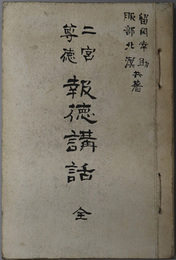 留岡幸助
服部北溟共著
二宮
尊徳
報徳講話
全